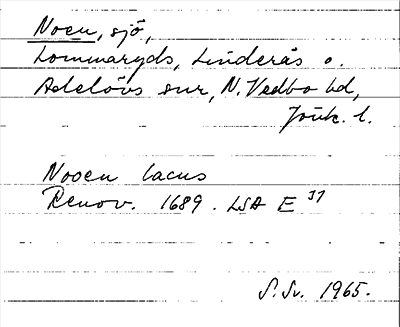 Noen, sjö,
Lommaryds, Linderås o.
Adelövs snr, N. Vedbo hd,
Jönk. l.
Nooen lacus
Renov. 1689. LSA E 31
S. Sv. 1965.